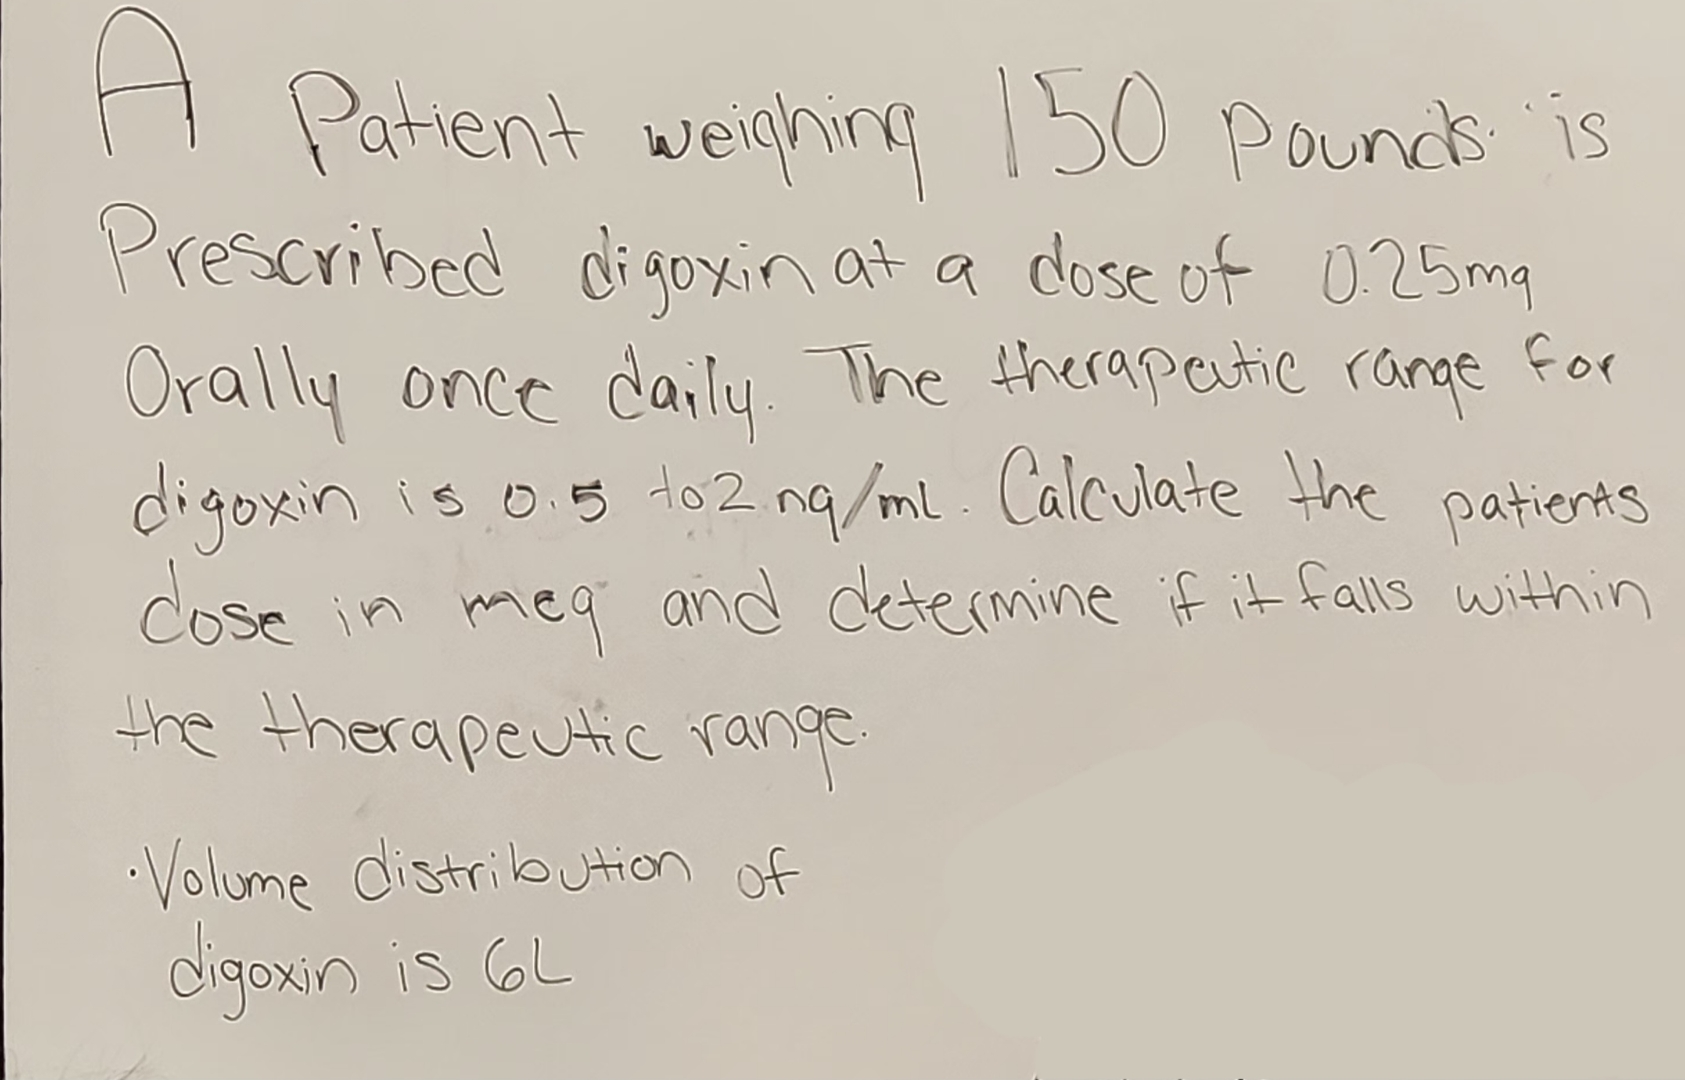 A Patient weighing 150 pounds is
Prescribed digoxin at a dose of 0.25mg
Orally once daily. The therapeutic range for
digoxin is 0.5 to 2 ng/mL. Calculate the patients
dose in mcg and determine if it falls within
the therapeutic range.
·Volume distribution of
digoxin is 6L